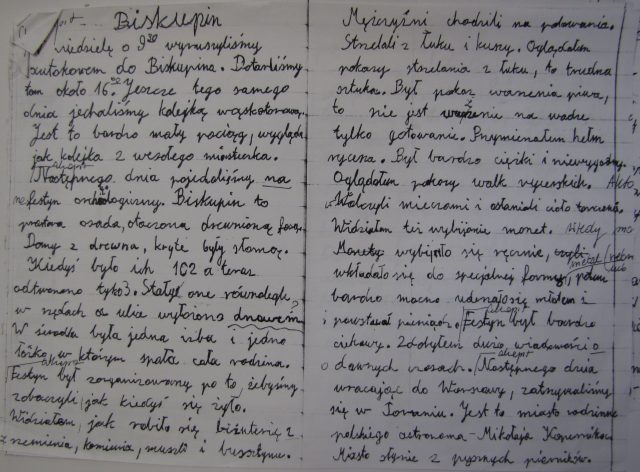 Biskupin
niedzielę o 9³⁰ wyruszyliśmy
autokarem do Biskupina. Dotarliśmy
tam około 16. Jeszcze tego samego
dnia jechaliśmy kolejką wąskotorową.
Jest to bardzo mały pociąg, wygląda
jak kolejka z wesołego miasteczka.
akapit
Następnego dnia pojechaliśmy na
festyn archeologiczny. Biskupin to
prastara osada, otoczona drewnianą fosą.
Domy z drewna, kryte były słomą.
Kiedyś było ich 102 a teraz
odtworzono tylko 3. Stały one równolegle
w rzędach a ulice wyłożono drewnem
W środku była jedna izba i jedno
łóżko, w którym spała cała rodzina.
akapit
Festyn był zorganizowany po to, żebyśmy
zobaczyli, jak kiedyś się żyło.
Widziałam, jak robiło się biżuterię z
rzemienia, kamienia, muszli i bursztynu.
Mężczyźni chodzili na polowania.
Strzelali z łuku i kuszy. Oglądałam
pokazy strzelania z łuku, to trudna
sztuka. Był pokaz warzenia piwa,
to nie jest ważenie na wadze
tylko gotowanie. Przymierzałam hełm
rycerza. Był bardzo ciężki i niewygodny.
Oglądałam pokazy walk rycerskich.
Walczyli mieczami i osłaniali ciało tarczami.
Widziałam też wybijanie monet.
Monety wybijało się ręcznie, czyli
wkładało się do specjalnej formy, potem
bardzo mocno uderzało się młotem i
akapit
powstawał pieniądz. Festyn był bardzo
ciekawy. Zdobyłam dużo wiadomości o
akapit
dawnych czasach. Następnego dnia
wracając do Warszawy, zatrzymaliśmy
się w Toruniu. Jest to miasto rodzinne
polskiego astronoma - Mikołaja Kopernika.
Miasto słynie z pysznych pierników.